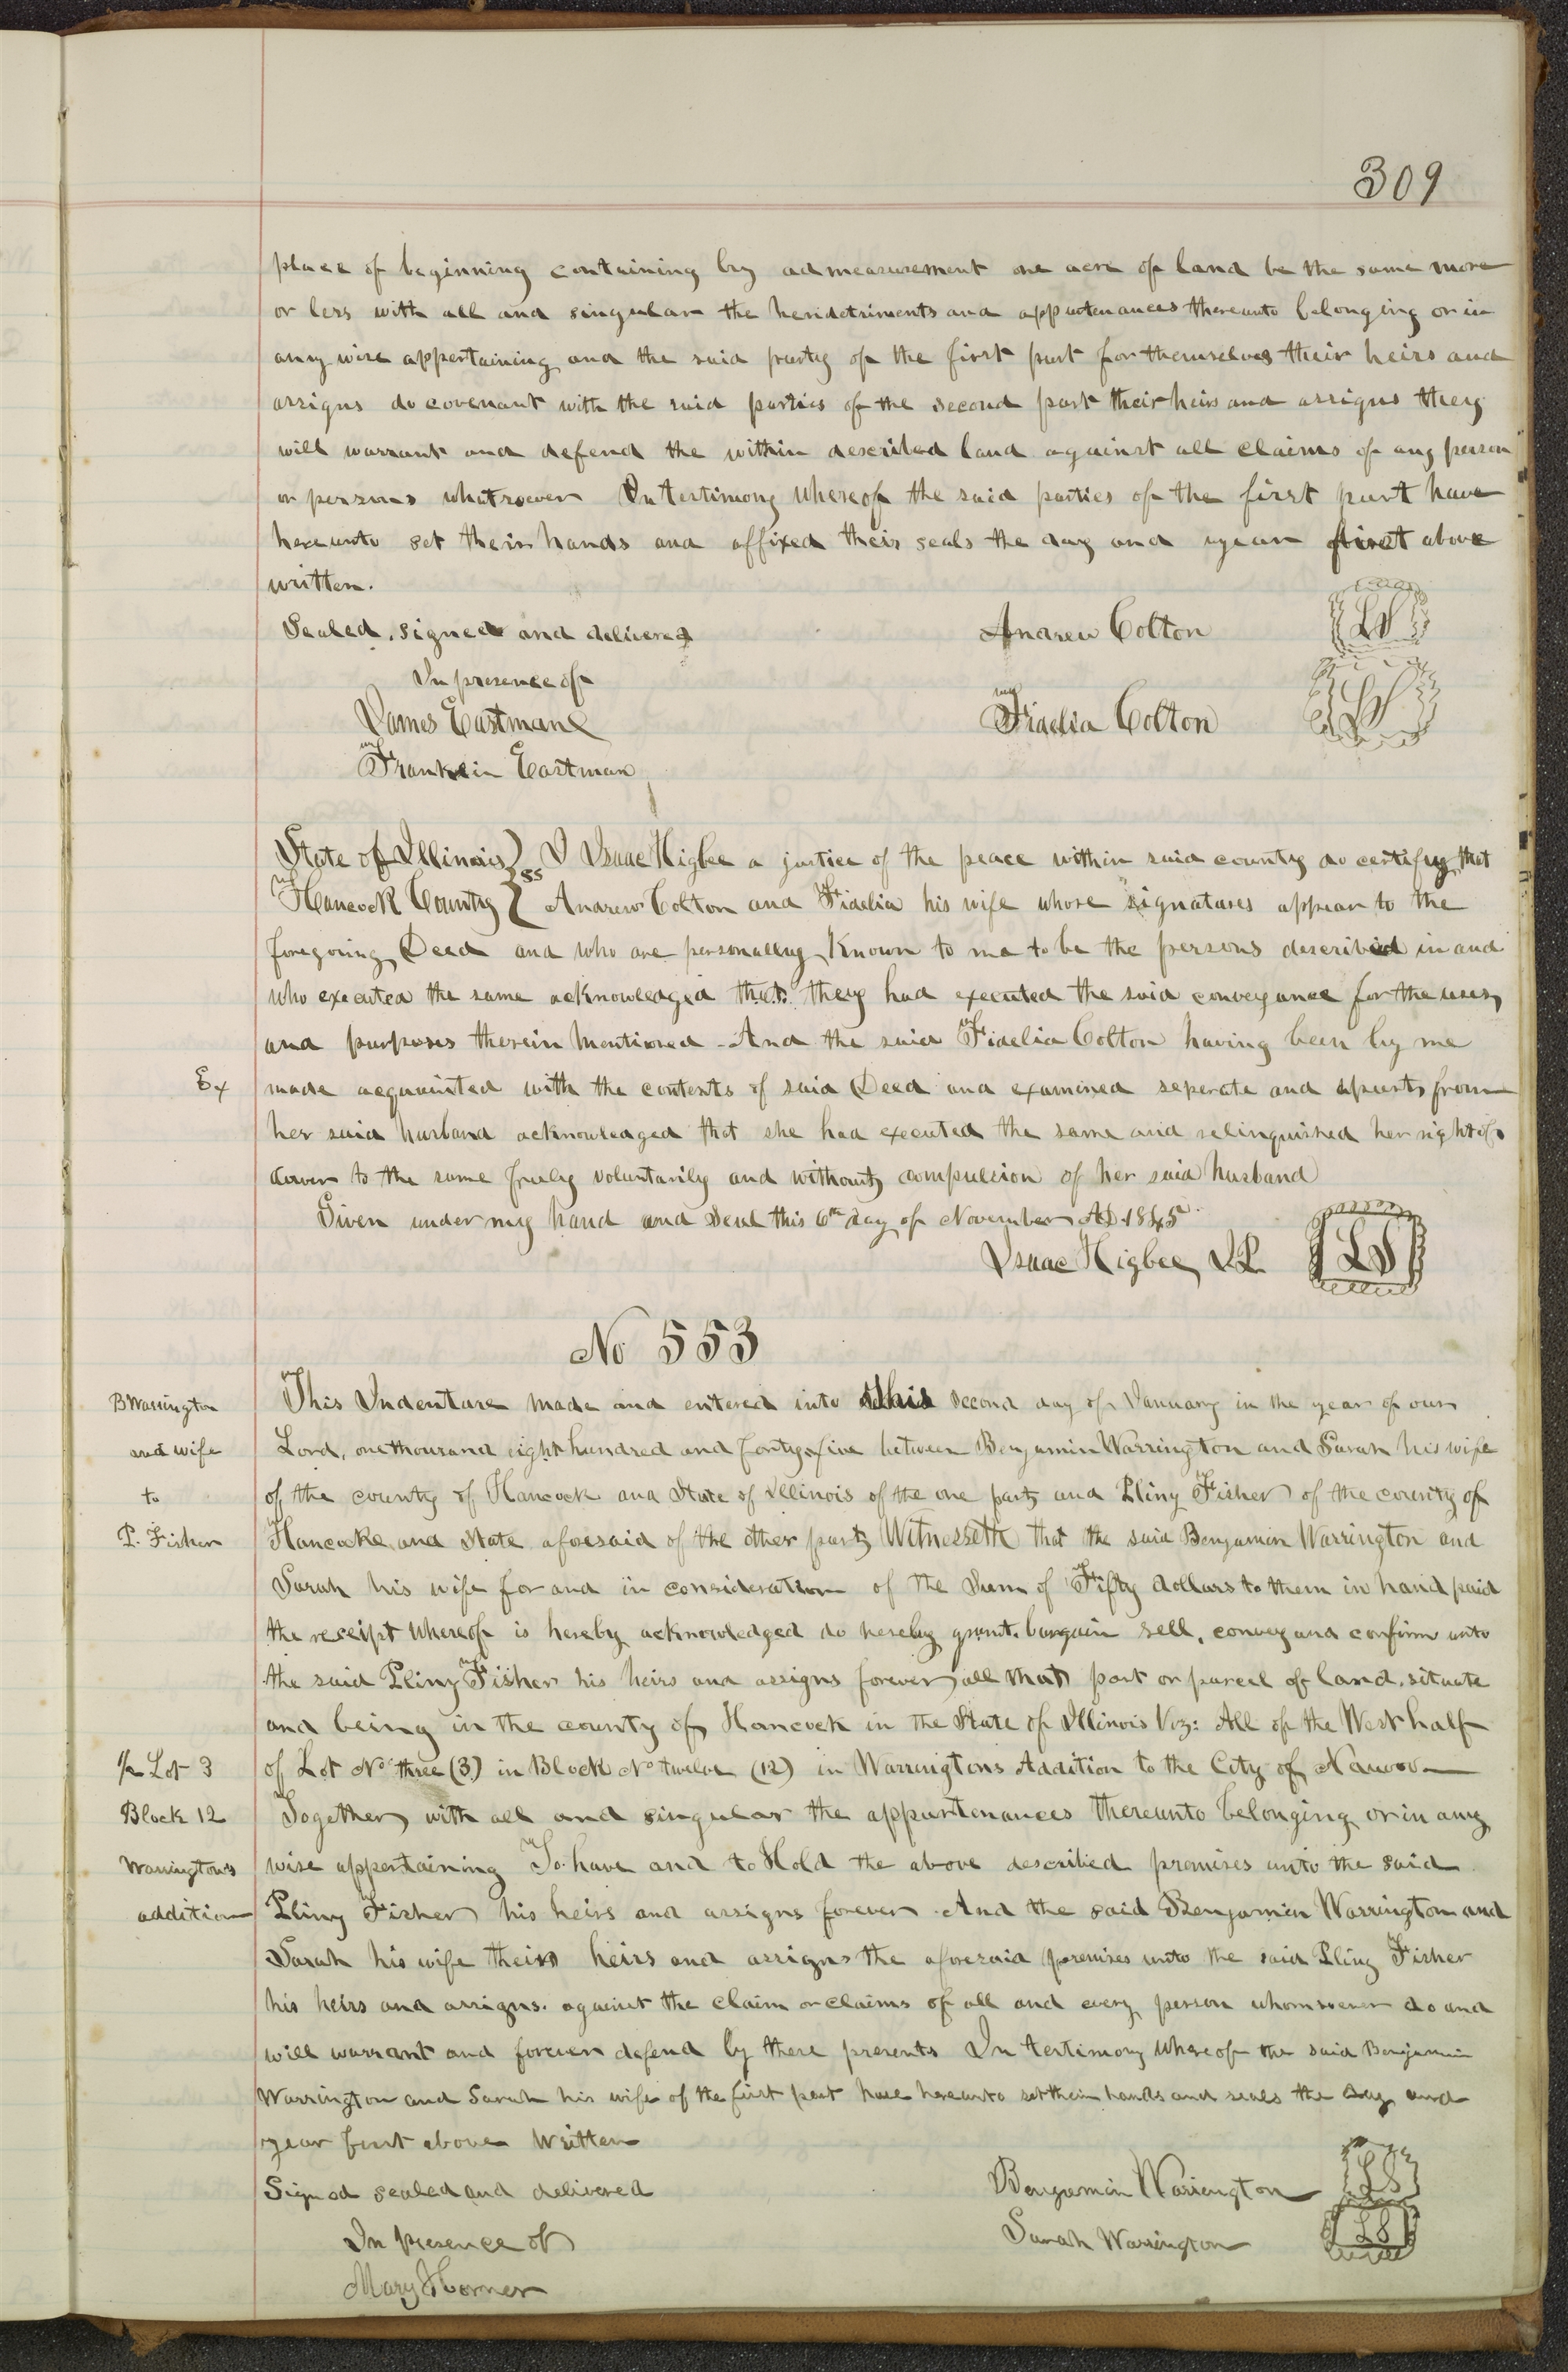 309
place of beginning containing by admeasurement one acre of land be the same more
or less with all and singular the heridetriments and appurtenances thereunto belonging or in
any wise appertaining and the said party of the first part for themselves their heirs and
assigns do covenant with the said parties of the second part their heirs and assigns they
will warrant and defend the within described land against all claims of any person
or persons whatsoever In testimony Whereof the said parties of the first part have
hereunto set their hands and affixed their seals the day and year first above
written.
Sealed, signed and delivered Andrew Colton LS
In presence of
James Eastman Fidelia Colton LS
Franklin Eastman
State of Illinois } I Isaac Higbee a justice of the peace within said county do certify that
Hancock County } ss Andrew Colton and Fidelia his wife whose signatures appear to the
foregoing Deed and who are personally Known to me to be the persons described in and
who executed the same acknowledged that they had executed the said conveyance for the uses
and purposes therein Mentioned - And the said Fidelia Colton having been by me
Ex made acquainted with the contents of said Deed and examined seperate and apart from
her said husband acknowledged that she had executed the same and relinquished her right of
dower to the same freely voluntarily and without compulsion of her said husband
Given under my hand and Seal this 6th day of November AD. 1845
Isaac Higbee J.P. LS
No 553
B Warrington This Indenture Made and entered into this second day of January in the year of our
and wife Lord, one thousand eight hundred and forty-five between Benjamin Warrington and Sarah his wife
to of the county of Hancock and State of Illinois of the one part and Pliny Fisher of the county of
P. Fisher Hancocke and State aforesaid of the other part Witnesseth that the said Benjamin Warrington and
Sarah his wife for and in consideration of the Sum of Fifty dollars to them in hand paid
the receipt whereof is hereby acknowledged do hereby grant, bargain sell, convey and confirm unto
the said Pliny Fisher his heirs and assigns forever all that part or parcel of land, situate
and being in the county of Hancock in the State of Illinois Viz: All of the West half
1/2 Lot 3 of Lot No three (3) in Block No twelve (12) in Warringtons Addition to the City of Nauvoo
Block 12 Together with all and singular the appurtenances thereunto belonging or in any
Warrington's wise appertaining To have and to Hold the above described premises unto the said
addition Pliny Fisher his heirs and assigns forever. And the said Benjamin Warrington and
Sarah his wife their heirs and assigns the aforesaid premises unto the said Pliny Fisher
his heirs and assigns. against the claim or claims of all and every person whomsoever do and
will warrant and forever defend by these presents In testimony Whereof the said Benjamin
Warrington and Sarah his wife of the first part have hereunto set their hands and seals the day and
year first above Written
Signed sealed and delivered Benjamin Warrington LS
In presence of Sarah Warrington LS
Mary Horner